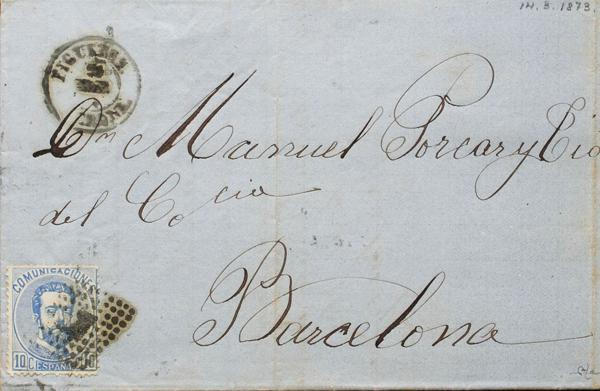 14. 3. 1873.
FIGUERAS
Dn Manuel Porcar y Tió
del Co cio
Barcelona
COMUNICACIONES
10 C ESPAÑA